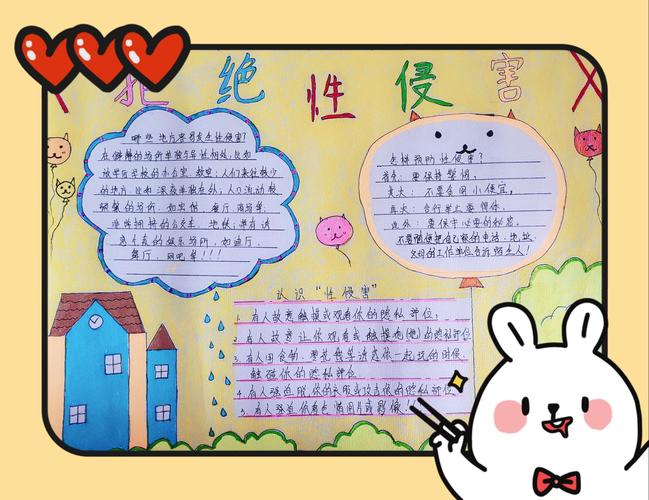 拒绝性侵害
哪些地方容易发生性侵害?
在僻静的场所单独与异性相处,比如
放学后学校的办公室、教室;人们来往较少
的地方,比如深夜单独在外;人口流动较
频繁的场所,如出租、餐厅、商场等.
非常拥挤的公交车、地铁;单身去
鱼龙杂的娱乐场所,如迪厅、
餐厅、网吧等!!!
怎样预防性侵害?
首先:要保持警惕,
其次:不要贪图小便宜,
再次:言行举止要得体,
此外:要保守必要的秘密,
不要随便把自己家的电话、地址、
父母的工作单位告诉陌生人!
认识“性侵害”
1. 有人故意触摸或观看你的隐私部位,
2. 有人故意让你观看或触摸他(她)的隐私部位
3. 有人用食物、零花钱等诱惑你一起玩的时候,
触碰你的隐私部位.
4. 有人强迫脱你的衣服或攻击你的隐私部位
5. 有人强迫你看色情图片或影像!